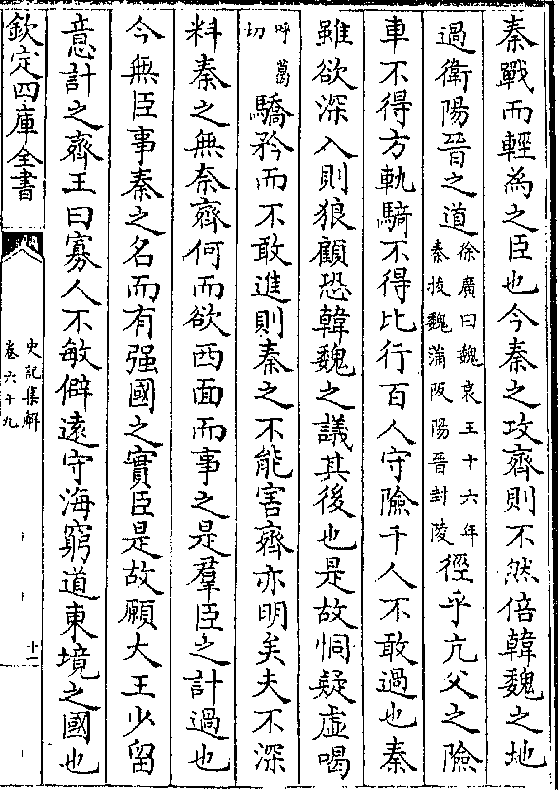 秦戰而輕為之臣也今秦之攻齊則不然倍韓魏之地
過衛陽晉之道徐廣曰魏哀王十六年秦拔魏蒲阪陽晉封陵徑乎亢父之險
車不得方軌騎不得比行百人守險千人不敢過也秦
雖欲深入則狼顧恐韓魏之議其後也是故恫疑虛喝
呼葛切驕矜而不敢進則秦之不能害齊亦明矣夫不深
料秦之無奈齊何而欲西面而事之是羣臣之計過也
今無臣事秦之名而有强國之實臣是故願大王少留
意計之齊王曰寡人不敏僻遠守海窮道東境之國也
欽定四庫全書
史記集解
卷六十九
十一